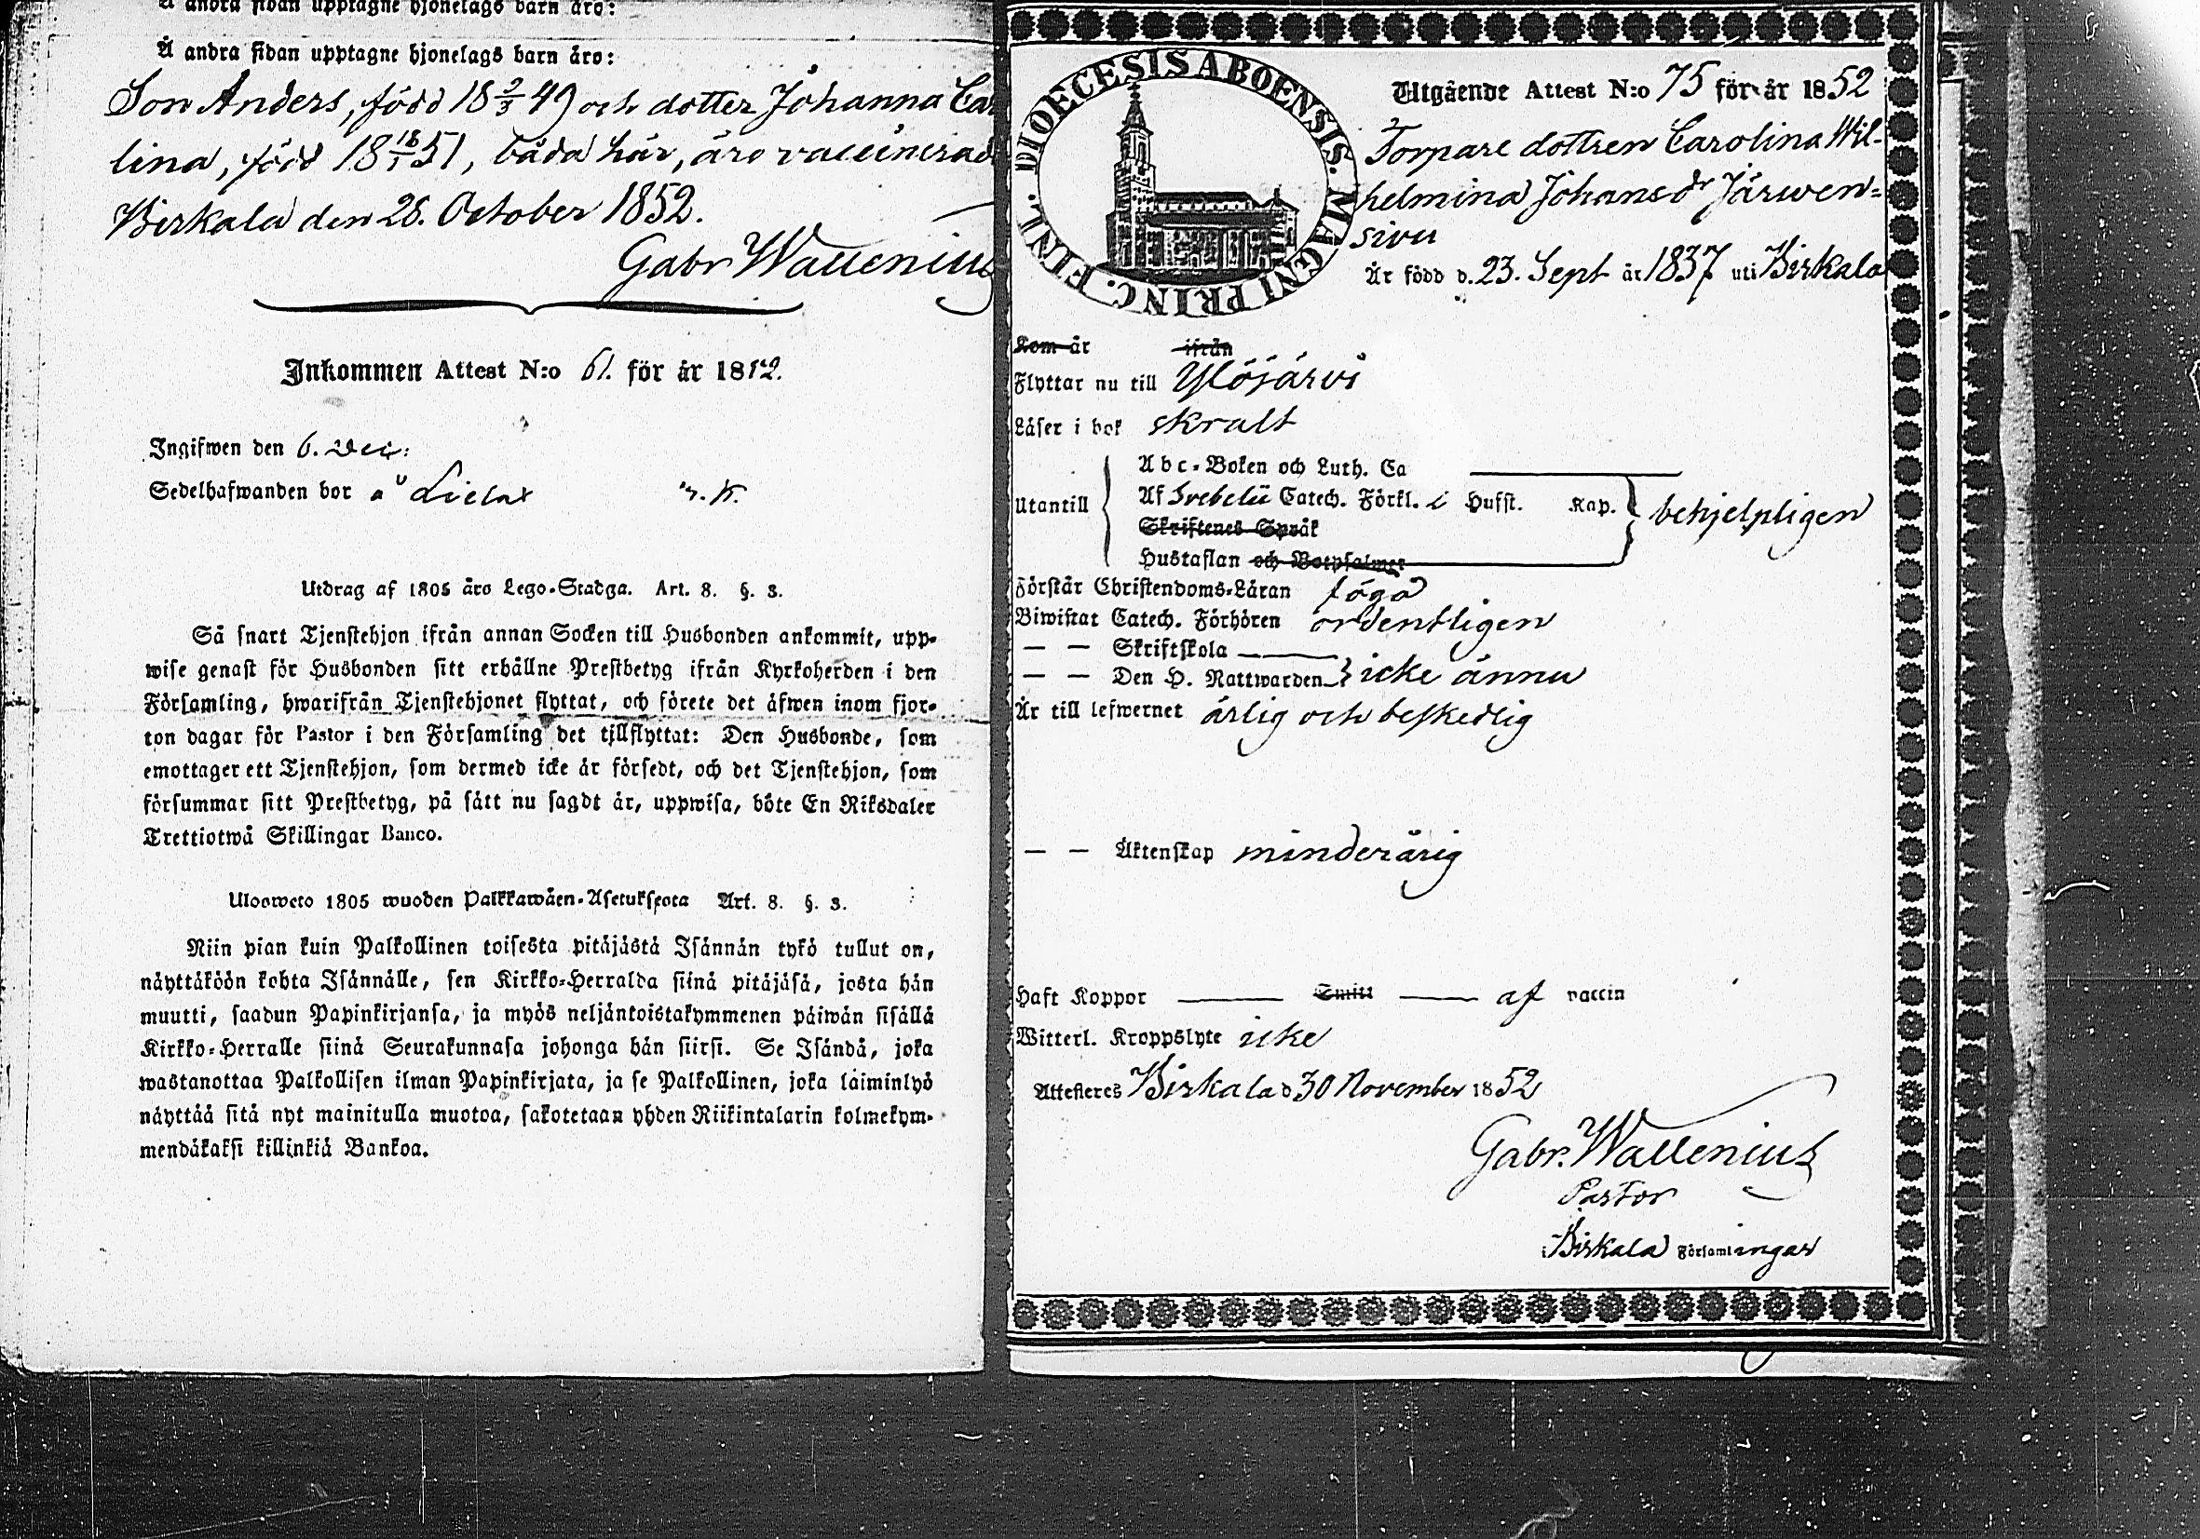 Å andra sidan upptagne hjonelags barn äro:
Å andra sidan upptagne hjonelags barn äro:
Son Anders, född 18 2/3 49 och dotter Johanna Ca
lina, född 18 18/1 51, båda här, äro vaccinerad
Birkala den 28. October 1852.
Gabr Wallenius
Inkommen Attest N:o 61. för år 1852.
Ingifwen den 6. Dec:
Sedelhafwanden bor å Lielax
Utdrag af 1805 års Lego-Stadga. Art. 8. §. 3.
Så snart Tjenstehjon ifrån annan Socken till Husbonden ankommit, upp-
wise genast för Husbonden sitt erhållne Prestbetyg ifrån Kyrkoherden i den
Församling, hwarifrån Tjenstehjonet flyttat, och förete det äfwen inom fjor-
ton dagar för Pastor i den Församling det tillflyttat: Den Husbonde, som
emottager ett Tjenstehjon, som dermed icke är försedt, och det Tjenstehjon, som
försummar sitt Prestbetyg, på sätt nu sagdt är, uppwisa, böte En Riksdaler
Trettiotwå Skillingar Banco.
Uloosweto 1805 wuoden Palkkawäen-Asetuksesta Art. 8. §. 3.
Niin pian kuin Palkollinen toisesta pitäjästä Isännän tykö tullut on,
näyttäköön kohta Isännälle, sen Kirkko-Herralda siinä pitäjäsä, josta hän
muutti, saadun Papinkirjansa, ja myös neljäntoistakymmenen päiwän sisällä
Kirkko-Herralle siinä Seurakunnasa johonga hän siirsi. Se Isändä, joka
wastanottaa Palkollisen ilman Papinkirjata, ja se Palkollinen, joka laiminlyö
näyttää sitä nyt mainitulla muotoa, sakotetaan yhden Riikintalarin kolmekym-
mendäkaksi killinkiä Bankoa.
DIOECESIS ABOENSIS. MAGNI PRINC. FINL.
Utgående Attest N:o 75 för år 1852
Torpare dottren Carolina Wil-
helmina Johansdr Järwen-
sivu
Är född d. 23. Sept år 1837 uti Birkala
Kom år ifrån
Flyttar nu till Ylöjärvi
Läser i bok skralt
Utantill
Abc-Boken och Luth. Ca
Af Svebelii Catech. Förkl. i Hufst. Kap. behjelpligen
Skriftenes Språk
Hustaflan och Botpsalmer
Förstår Christendoms-Läran föga
Biwistat Catech. Förhören ordentligen
— — Skriftskola
— — Den H. Nattwarden icke ännu
Är till lefwernet ärlig och beskedlig
— — Äktenskap minderårig
Haft Koppor Smitt af vaccin
Witterl. Kroppslyte icke
Attesteres Birkala d 30 November 1852
Gabr. Wallenius
Pastor
i Birkala Församlingar